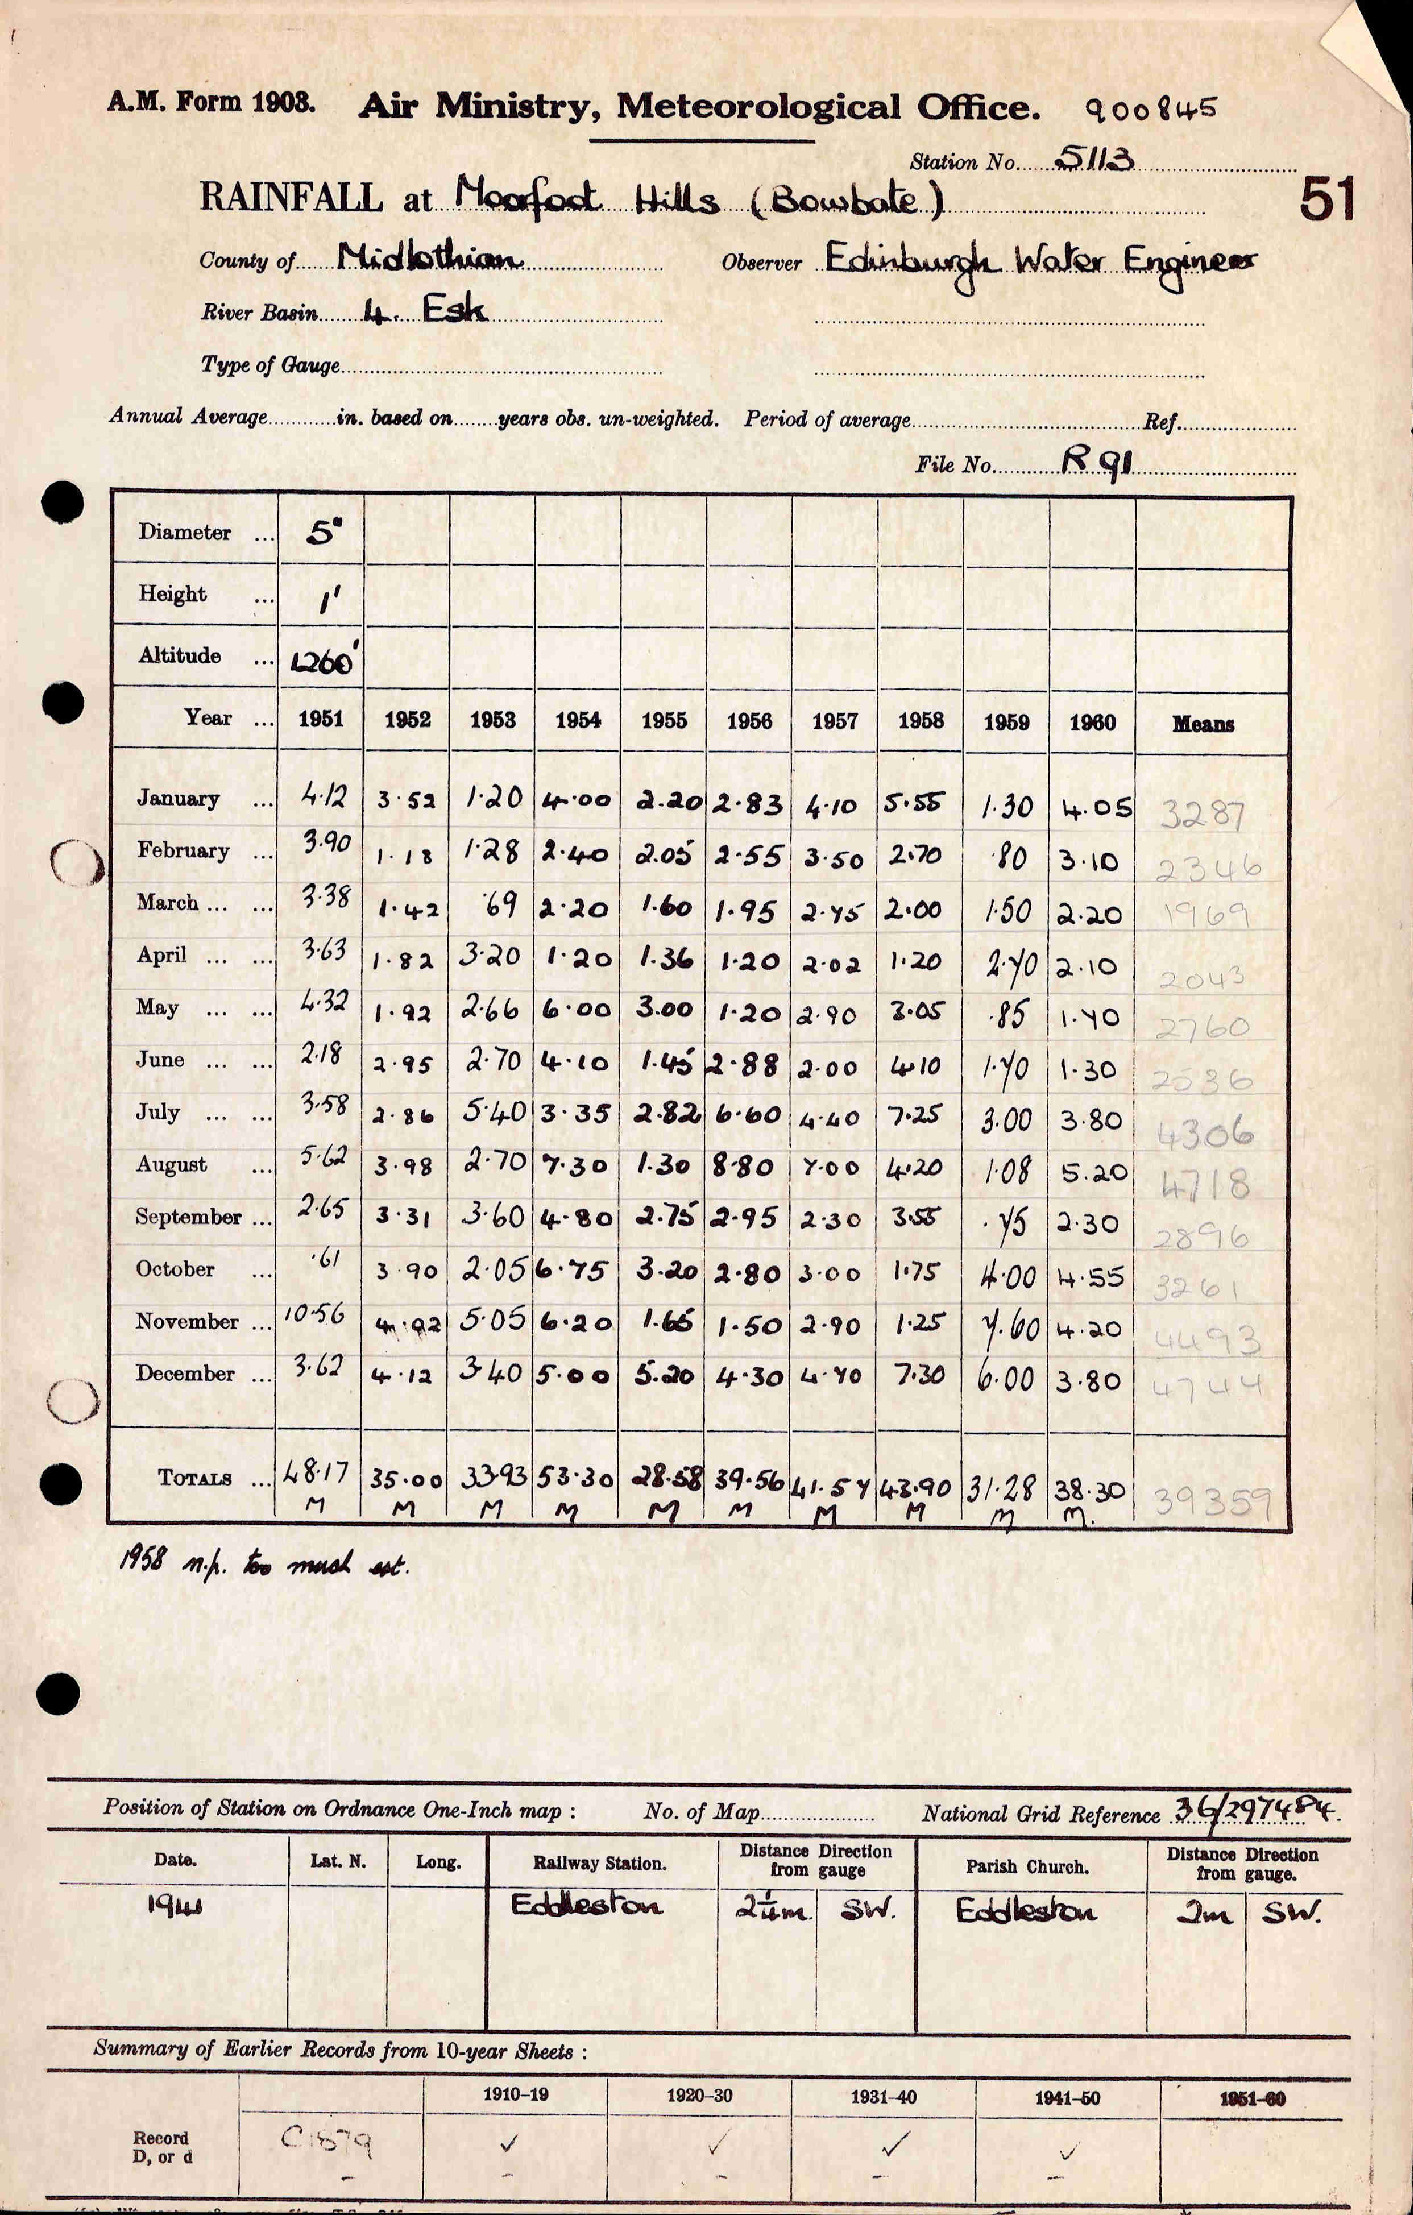 A.M. Form 1903. Air Ministry, Meteorological Office. 900845
Station No. 5113
RAINFALL at Moorfoot Hills (Bowbate) 51
County of Midlothian Observer Edinburgh Water Engineer
River Basin 4. Esk
Type of Gauge
Annual Average in. based on years obs. un-weighted. Period of average Ref.
File No. R 91
Diameter ... 5"
Height ... 1'
Altitude ... 1260'
Year ... 1951 1952 1953 1954 1955 1956 1957 1958 1959 1960 Means
January ... 4.12 3.52 1.20 4.00 2.20 2.83 4.10 5.55 1.30 4.05 3287
February ... 3.90 1.18 1.28 2.40 2.05 2.55 3.50 2.70 .80 3.10 2346
March ... ... 3.38 1.42 .69 2.20 1.60 1.95 2.75 2.00 1.50 2.20 1969
April ... ... 3.63 1.82 3.20 1.20 1.36 1.20 2.02 1.20 2.70 2.10 2043
May ... ... 4.32 1.92 2.66 6.00 3.00 1.20 2.90 3.05 .85 1.70 2760
June ... ... 2.18 2.95 2.70 4.10 1.45 2.88 2.00 4.10 1.70 1.30 2536
July ... ... 3.58 2.86 5.40 3.35 2.82 6.60 4.40 7.25 3.00 3.80 4306
August ... 5.62 3.98 2.70 7.30 1.30 8.80 7.00 4.20 1.08 5.20 4718
September ... 2.65 3.31 3.60 4.80 2.75 2.95 2.30 3.55 .75 2.30 2896
October ... .61 3.90 2.05 6.75 3.20 2.80 3.00 1.75 4.00 4.55 3261
November ... 10.56 4.02 5.05 6.20 1.65 1.50 2.90 1.25 7.60 4.20 4493
December ... 3.62 4.12 3.40 5.00 5.20 4.30 4.70 7.30 6.00 3.80 4744
TOTALS ... 48.17 35.00 33.93 53.30 28.58 39.56 41.57 43.90 31.28 38.30 39359
M M M M M M M M M M.
1958 n.p. too much est.
Position of Station on Ordnance One-Inch map : No. of Map National Grid Reference 36/297484.
Date. Lat. N. Long. Railway Station. Distance Direction from gauge Parish Church. Distance Direction from gauge.
1941 Eddleston 2¼m SW. Eddleston 2m SW.
Summary of Earlier Records from 10-year Sheets :
1910–19 1920–30 1931–40 1941–50 1951–60
Record C1879 ✓ ✓ ✓ ✓
D, or d – – – –